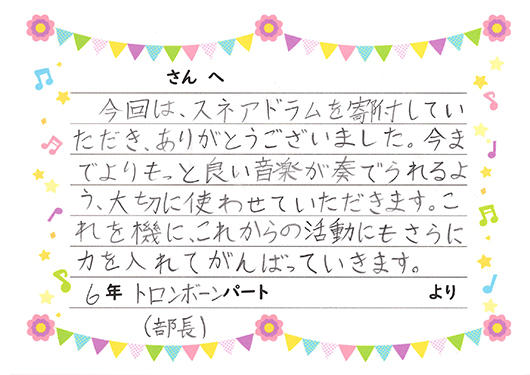 さん へ
今回は、スネアドラムを寄付してい
ただき、ありがとうございました。今ま
でよりもっと良い音楽が奏でられるよ
う、大切に使わせていただきます。こ
れを機に、これからの活動にもさらに
力を入れてがんばっていきます。
6年 トロンボーンパート より
(部長)